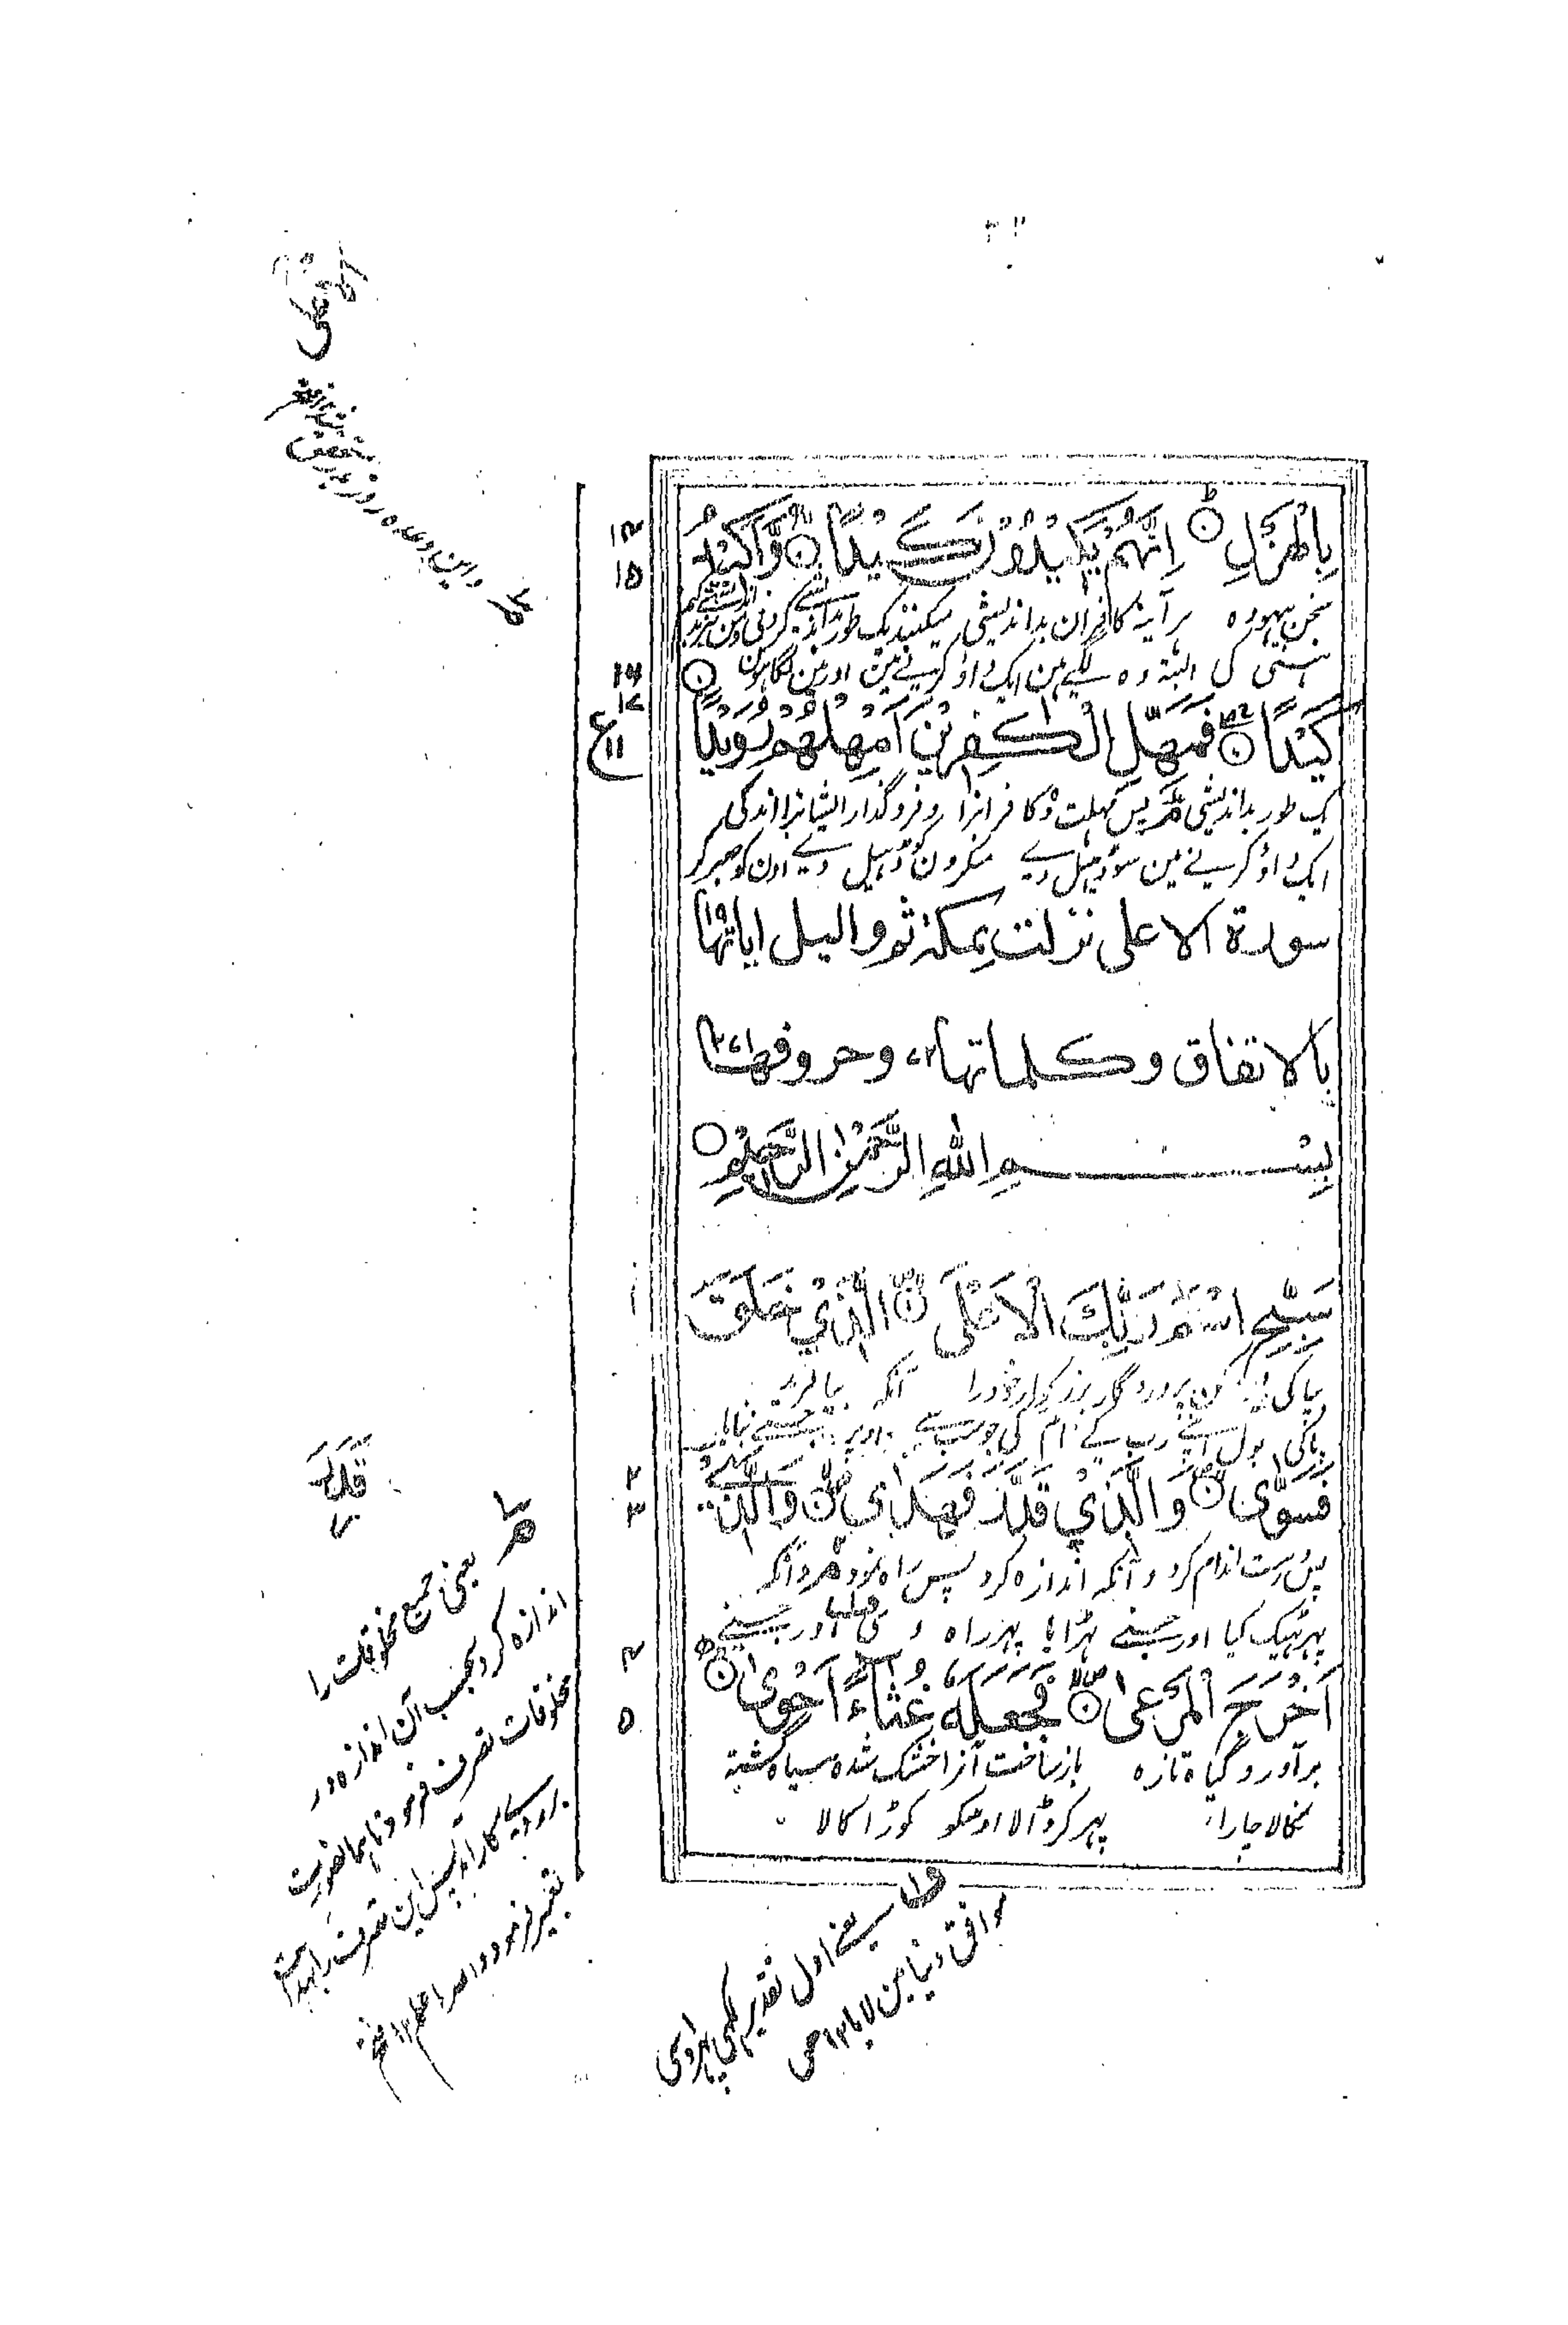 بِالْهَزْلِ ۝ اِنَّهُمْ يَكِيْدُوْنَ كَيْدًا ۝ وَّاَكِيْدُ
سخن بیهوده هر آینه کافران بداندیشی میکنند یک طور بداندیشی کردنی و من نیز
ہنسی کی البتہ وہ لگے ہین ایک داؤ کرنے مین اور مین لگا ہون
كَيْدًا ۝ فَمَهِّلِ الْكٰفِرِيْنَ اَمْهِلْهُمْ رُوَيْدًا ۝
یک طور بداندیشی پس مہلت دہ کافرانرا و فروگذار ایشانرا اندکی
ایک داؤ کرنے مین سو ڈھیل دے منکرون کو ڈھیل دے اون کو صبر کر
سورة الاعلى نزلت بمكة ثم واليل اياتها ۱۹
بالاتفاق وكلماتها ۷۲ وحروفها ۲۷۱
بِسْمِ اللهِ الرَّحْمٰنِ الرَّحِيْمِ ۝
سَبِّحِ اسْمَ رَبِّكَ الْاَعْلَى ۝ الَّذِيْ خَلَقَ
پاکی کن پروردگار بزرگوار خود را آنکه بیافرید
پاکی بول اپنے رب کے نام کی جو سب سے اوپر جسنے بنایا
فَسَوّٰى ۝ وَالَّذِيْ قَدَّرَ فَهَدٰى ۝ وَالَّذِيْ
پس درست اندام کرد و آنکه اندازه کرد پس راه نمود و آنکه
پہر ٹھیک کیا اور جسنے ٹہرایا پہر راہ دی اور جسنے
اَخْرَجَ الْمَرْعٰى ۝ فَجَعَلَهٗ غُثَآءً اَحْوٰى ۝
برآورد گیاه تازه باز ساخت آنرا خشک شده سیاه گشته
نکالا چارا پہر کر ڈالا اوسکو کوڑا کالا
۱۴
۱۵
۱۶
۱۷
ع
۱۱
۱
۲
۳
۴
۵
یعنی جمیع مخلوقات را
اندازه کرد بحسب آن اندازه در
مخلوقات تصرف فرمود تا
پس این تصرف را بهدایت
تعبیر فرمود والله اعلم
یعنے اول تقدیر لکھی پہر اوسی
موافق دنیا مین لایا